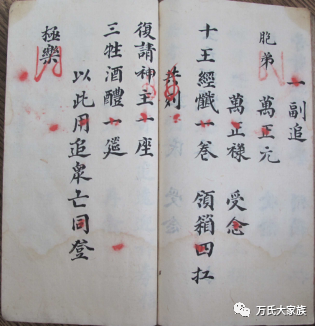 一副追
胞弟 萬正元
萬正祿 受念
十王經懺一卷 領箱四扛
共列
復請神主一座
三牲酒醴一筵
以此用追眾亡同堂
極樂
万氏大家族